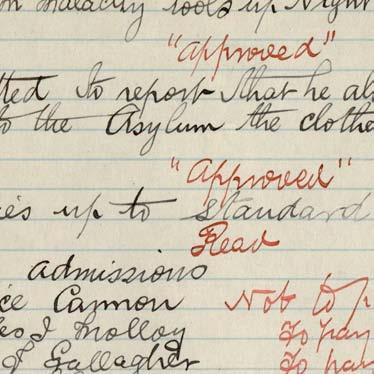 malachy tools up Night
"Approved"
tted to report that he al
to the Asylum the clothe
"Approved"
es up to Standard
Read
Admissions
ice Cannon Not to p
es J Molloy To pay
J Gallagher To pay